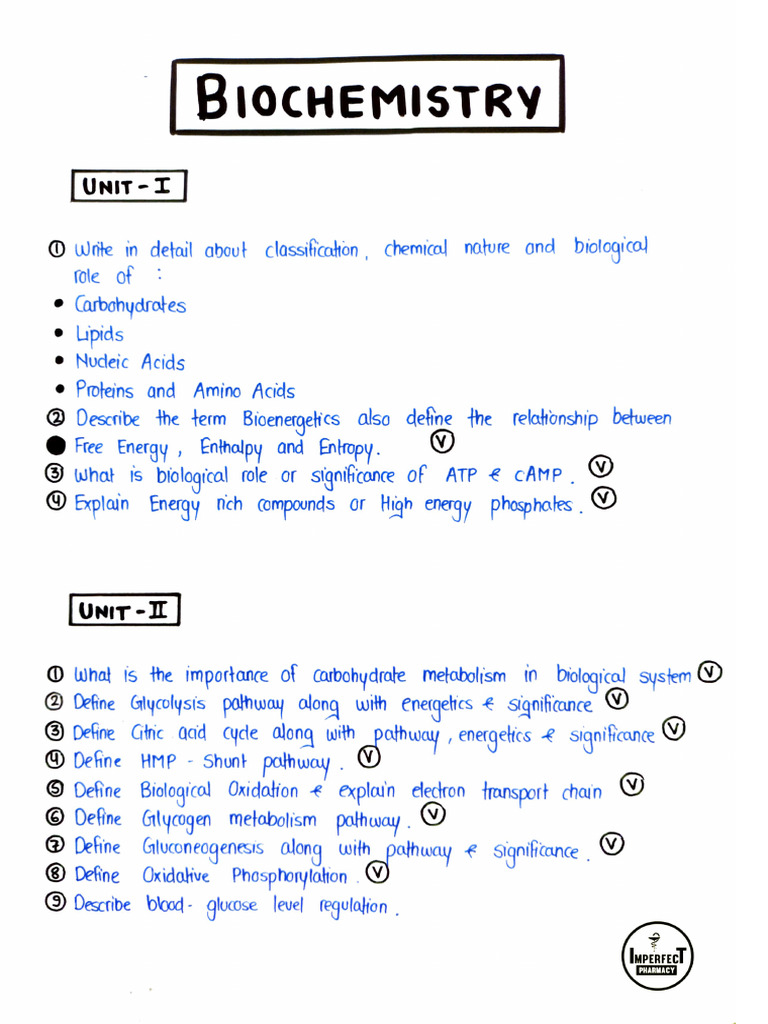 BIOCHEMISTRY
UNIT - I
① Write in detail about classification, chemical nature and biological
role of :
• Carbohydrates
• Lipids
• Nucleic Acids
• Proteins and Amino Acids
② Describe the term Bioenergetics also define the relationship between
● Free Energy, Enthalpy and Entropy. Ⓥ
③ What is biological role or significance of ATP & cAMP. Ⓥ
④ Explain Energy rich compounds or High energy phosphates. Ⓥ
UNIT - II
① What is the importance of carbohydrate metabolism in biological system Ⓥ
② Define Glycolysis pathway along with energetics & significance Ⓥ
③ Define Citric acid cycle along with pathway, energetics & significance Ⓥ
④ Define HMP - Shunt pathway. Ⓥ
⑤ Define Biological Oxidation & explain electron transport chain Ⓥ
⑥ Define Glycogen metabolism pathway. Ⓥ
⑦ Define Gluconeogenesis along with pathway & significance. Ⓥ
⑧ Define Oxidative Phosphorylation. Ⓥ
⑨ Describe blood-glucose level regulation.
IMPERFECT
PHARMACY